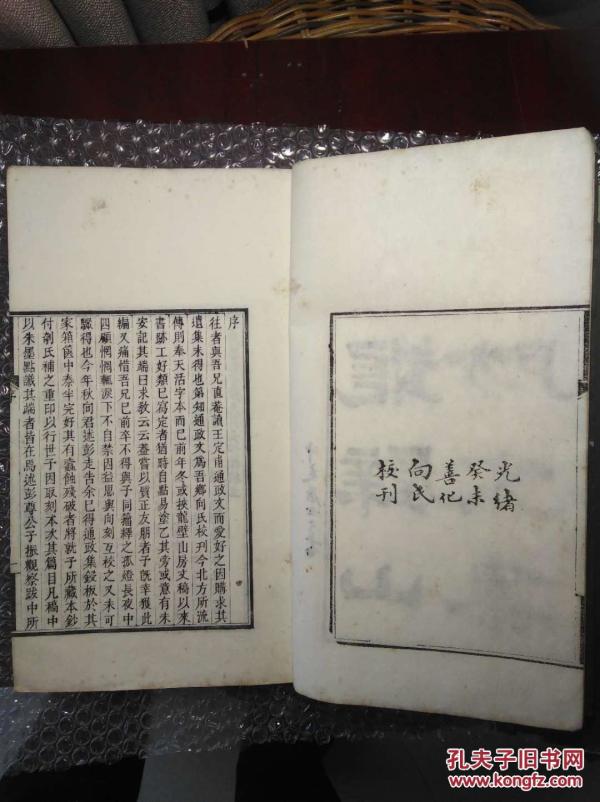 光緒
癸未
善化
向氏
校刊
序
往者與吾兄直菴讀王定甫通政文而愛好之因購求其
遺集未得也第知通政文爲吾鄉向氏校刊今北方所流
傳則奉天活字本而已前年冬或挾龍壁山房文稿以來
書跡工好類已寫定者猶時自點易塗乙其旁或意有未
安記其端曰求教云云蓋嘗以質正友朋者子旣幸獲此
編又痛惜吾兄已前卒不得與子同籀繹之孤燈長夜中
四顧惘惘輒淚下不自禁因益思與向刻互校之又未可
驟得也今年秋向君述彭走告余已得通政集鋟板於其
家箱篋中泰半完好其有蠹蝕殘破者將就子所藏本鈔
付剞氏補之重印以行世子因取刻本次其篇目凡稿中
以朱墨點識其端者皆在焉述彭尊公子振觀察跋中所
序
一
孔夫子旧书网
www.kongfz.com